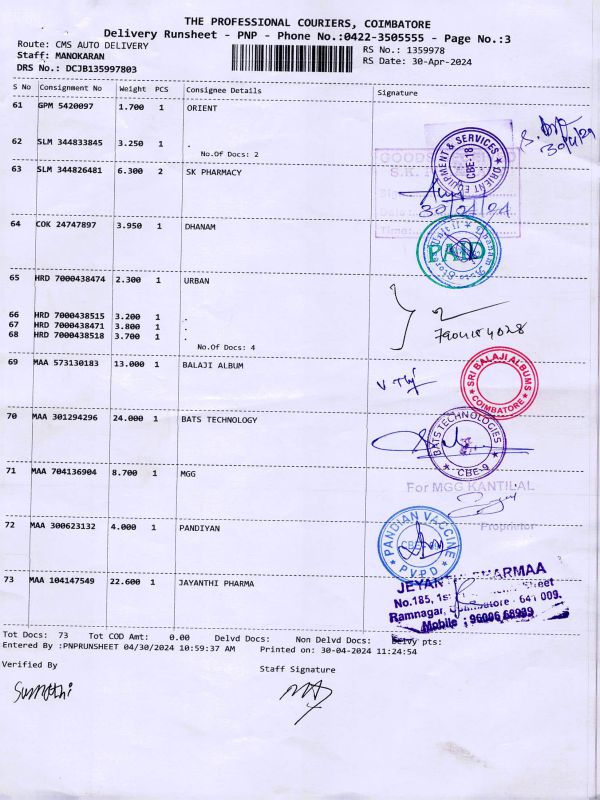 THE PROFESSIONAL COURIERS, COIMBATORE
Delivery Runsheet - PNP - Phone No.:0422-3505555 - Page No.:3
Route: CMS AUTO DELIVERY
RS No.: 1359978
Staff: MANOKARAN
RS Date: 30-Apr-2024
DRS No.: DCJB135997803
S No Consignment No Weight PCS Consignee Details Signature
61 GPM 5420097 1.700 1 ORIENT
30/4/24
62 SLM 344833845 3.250 1 .
No.Of Docs: 2
ORIENT EQUIPMENT & SERVICES
CBE-18
63 SLM 344826481 6.300 2 SK PHARMACY
GOODS
S.K.
30/04/24
Time:
64 COK 24747897 3.950 1 DHANAM
PAID
Dhanam
65 HRD 7000438474 2.300 1 URBAN
66 HRD 7000438515 3.200 1 .
67 HRD 7000438471 3.800 1 .
68 HRD 7000438518 3.700 1 .
No.Of Docs: 4
7904184028
69 MAA 573130183 13.000 1 BALAJI ALBUM
SRI BALAJI ALBUMS
COIMBATORE
70 MAA 301294296 24.000 1 BATS TECHNOLOGY
BATS TECHNOLOGIES
CBE-9
71 MAA 704136904 8.700 1 MGG
For MGG KANTILAL
Proprietor
72 MAA 300623132 4.000 1 PANDIYAN
PANDIAN VACCINE
P.V.P.D
73 MAA 104147549 22.600 1 JAYANTHI PHARMA
No.185, 1st Street
Ramnagar, Coimbatore - 641 009.
Mobile : 96006 68999
Tot Docs: 73 Tot COD Amt: 0.00 Delvd Docs: Non Delvd Docs: Delvy pts:
Entered By :PNPRUNSHEET 04/30/2024 10:59:37 AM Printed on: 30-04-2024 11:24:54
Verified By
Staff Signature
Sumathi